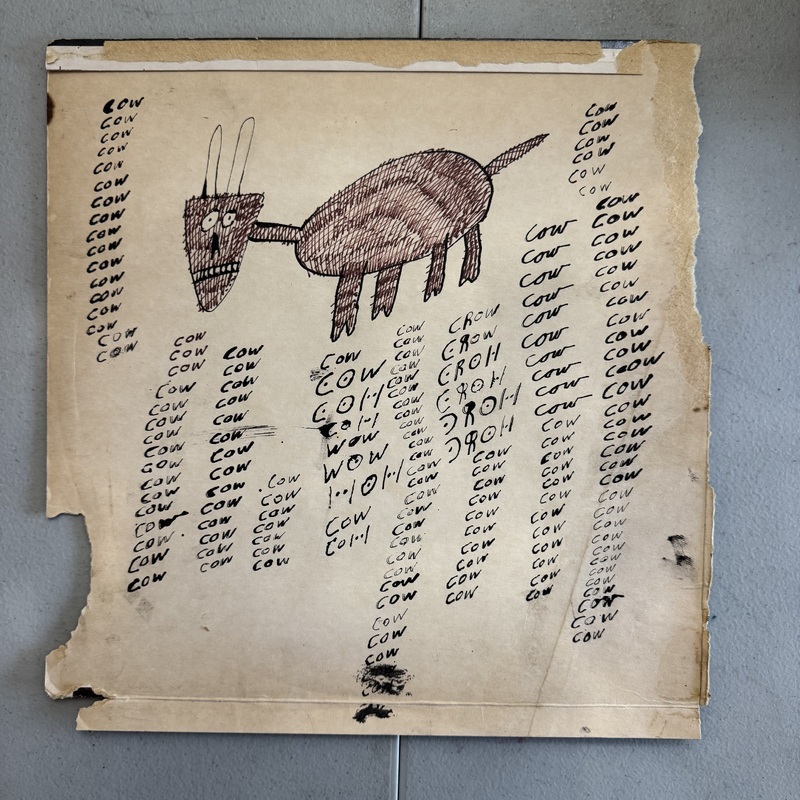 COW
COW
COW
COW
COW
COW
COW
COW
COW
COW
COW
COW
COW
COW
COW
COW
COW
COW
COW
COW
COW
COW
COW
COW
COW
COW
COW
COW
COW
COW
COW
COW
COW
COW
COW
COW
COW
COW
COW
COW
COW
COW
COW
COW
COW
COW
COW
COW
COW
COW
COW
COW
COW
COW
COW
COH
COH
WOW
WOW
HOH
COW
COH
COW
COW
COW
COW
COW
COW
COW
COW
COW
COW
COW
COW
COW
COW
COW
COW
COW
COW
COW
COW
COW
COW
COW
COW
CROW
CROW
CROH
CROH
CROH
CROH
COW
COW
COW
COW
COW
COW
COW
COW
COW
COW
COW
COW
COW
COW
COW
COW
COW
COW
COW
COW
COW
COW
COW
COW
COW
COW
COW
COW
COW
COW
COW
COW
COW
COW
COW
COW
COW
COW
COW
COW
COW
COW
COW
COW
COW
COW
COW
COW
COW
COW
COW
COW
COW
COW
COW
COW
COW
COW
COW
COW
COW
COW